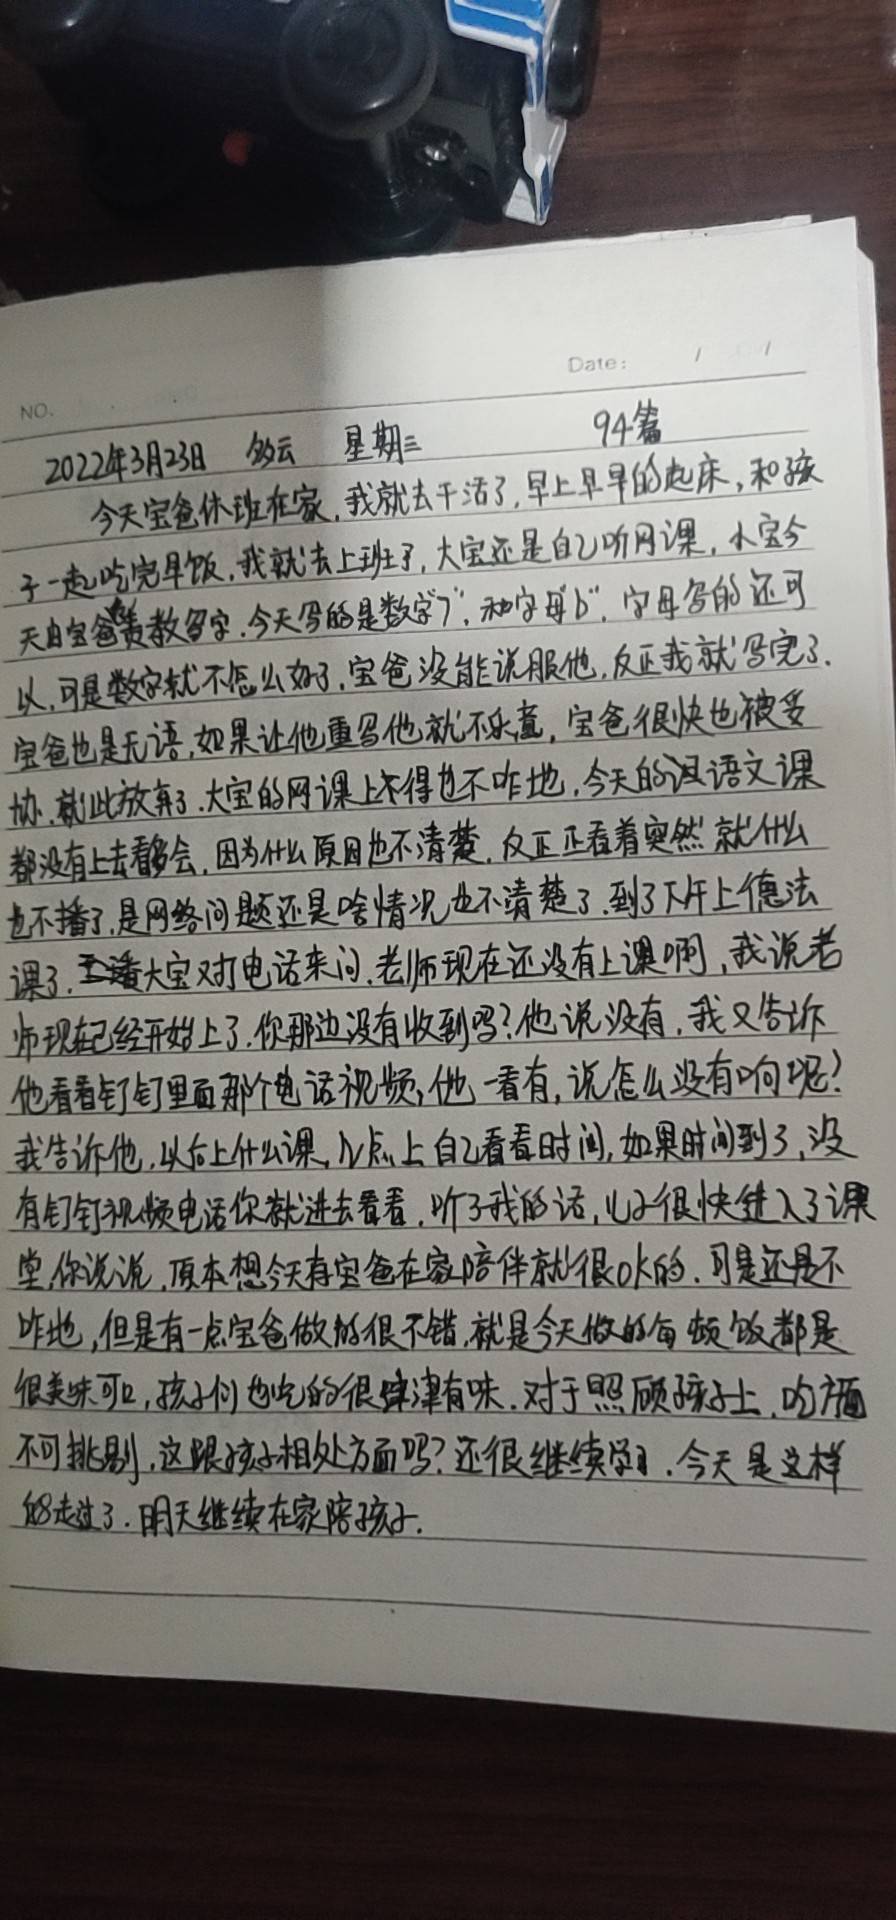 Date: / /
NO.
2022年3月23日 多云 星期三 94篇
今天宝爸休班在家,我就去干活了,早上早早的起床,和孩
子一起吃完早饭,我就去上班了,大宝还是自己听网课,小宝今
天由宝爸负责教写字.今天写的是数字"7",和字母"b".字母写的还可
以,可是数字就不怎么好了,宝爸没能说服他,反正我就写完了.
宝爸也是无语,如果让他重写他就不乐意,宝爸很快也被妥
协,就此放弃了.大宝的网课上得也不咋地,今天的语文课
都没有上去看多会,因为什么原因也不清楚,反正正看着突然就什么
也不播了,是网络问题还是啥情况也不清楚了.到了下午上德法
课了,大宝对打电话来问,老师现在还没有上课啊,我说老
师现在已经开始上了,你那边没有收到吗?他说没有,我又告诉
他看看钉钉里面那个电话视频,他一看有,说怎么没有响呢?
我告诉他,以后上什么课,几点上自己看看时间,如果时间到了,没
有钉钉视频电话你就进去看看,听了我的话,儿子很快进入了课
堂,你说说,原本想今天有宝爸在家陪伴就很ok的,可是还是不
咋地,但是有一点宝爸做的很不错,就是今天做的每顿饭都是
很美味可口,孩子们也吃的很津津有味.对于照顾孩子上,吃方面
不可挑剔,这跟孩子相处方面吗?还很继续学习.今天是这样
的走过了.明天继续在家陪孩子.